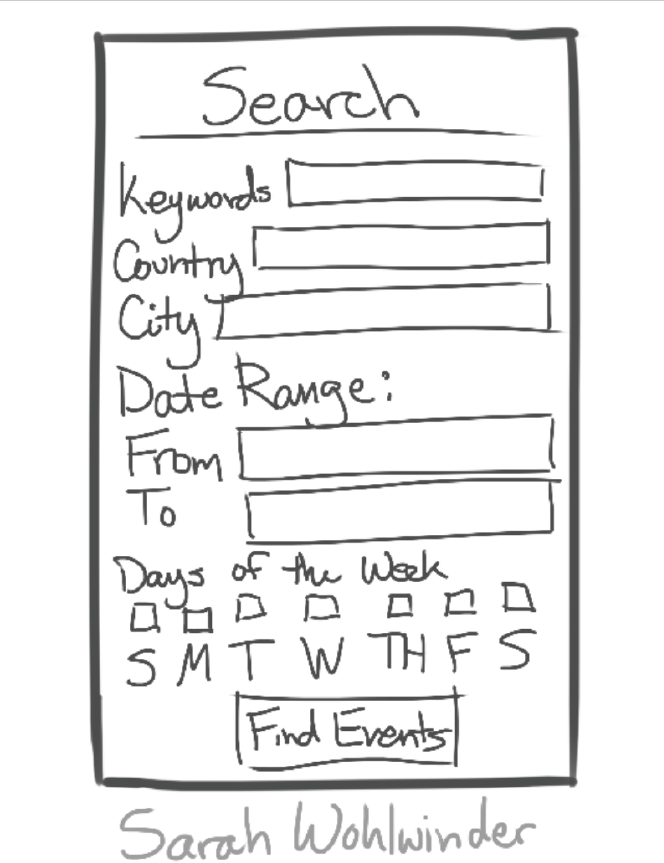 Search
Keywords
Country
City
Date Range:
From
To
Days of the Week
S M T W TH F S
Find Events
Sarah Wohlwinder